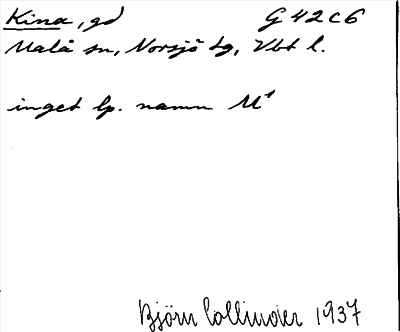 Kina, gd G 42 C 6
Malå sn, Norsjö tg, Vbt l.
inget lp. namn M¹
Björn Collinder 1937